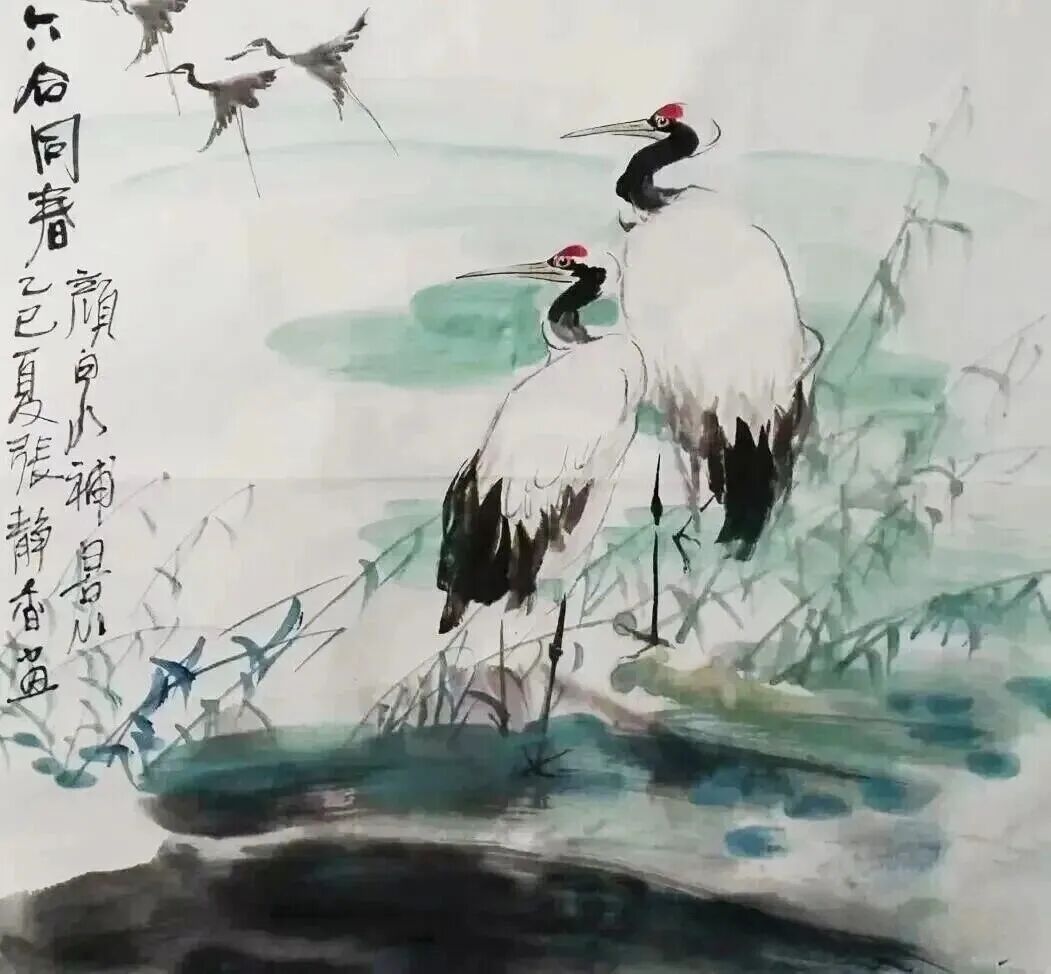 六合同春
乙巳夏張静香画
顏泉補景